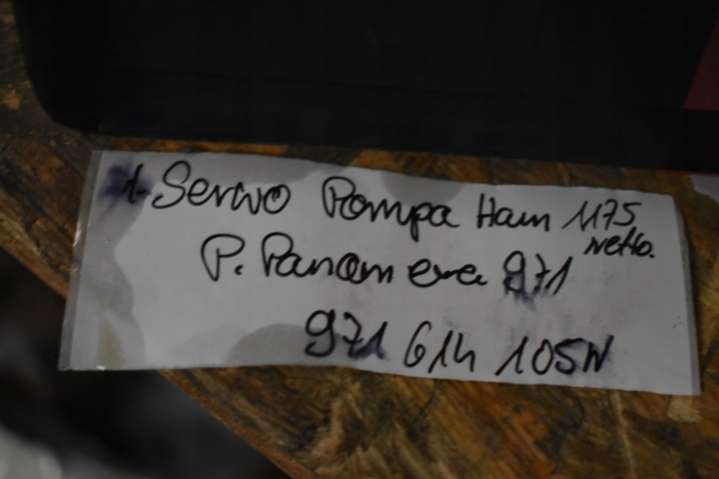 1. Serwo Pompa Ham 1175
netto.
P. Panamera 971
971 614 105N